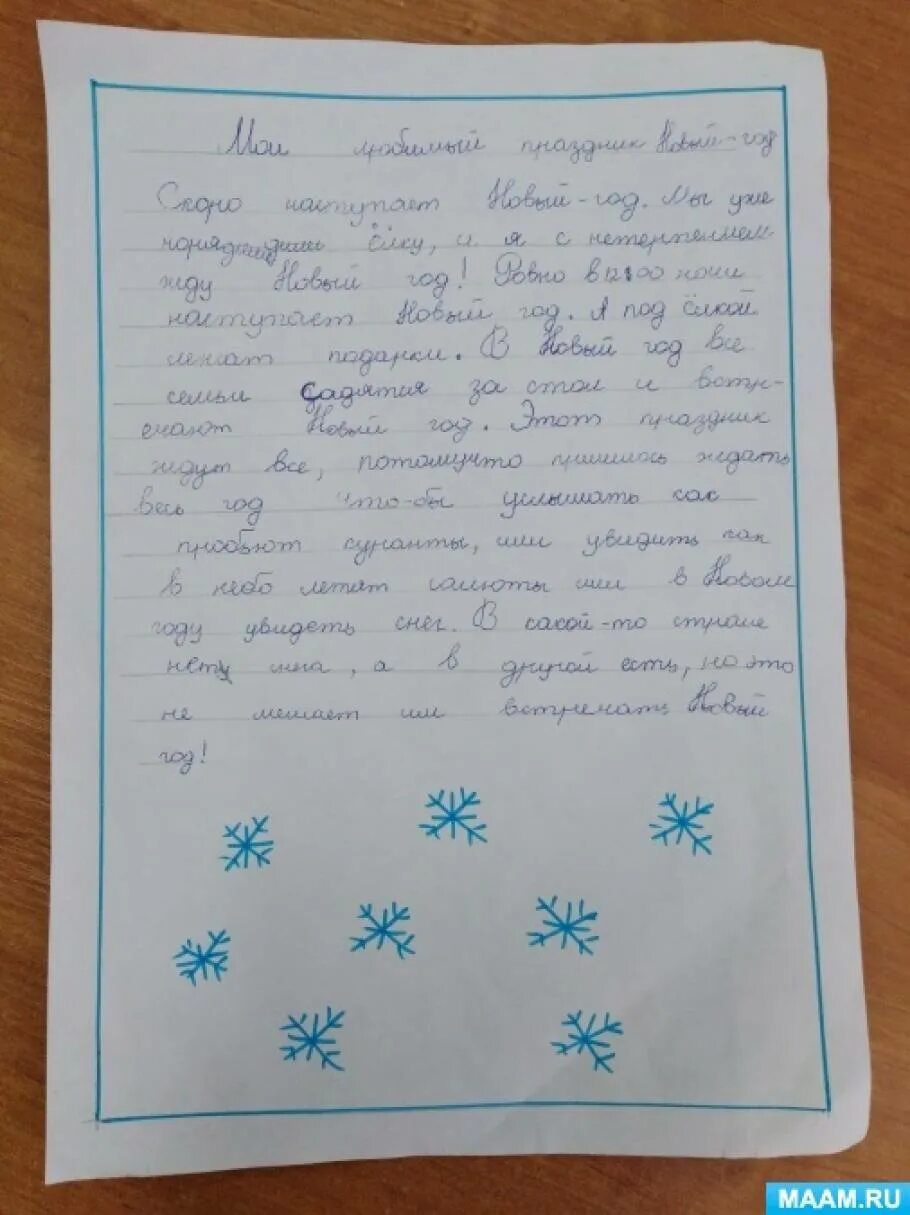 Мой любимый праздник Новый-год
Скоро наступает Новый-год. Мы уже
ёлку, и я с нетерпением
жду Новый год! Ровно в 12:00 ночи
наступает Новый год. А под ёлкой
лежат подарки. В Новый год все
семьи садятся за стол и встре-
чают Новый год. Этот праздник
ждут все, потомучто пришлось ждать
весь год что-бы услышать как
пробьют куранты, или увидить как
в небо летят салюты или в Новом
году увидеть снег. В какой-то стране
нету снега, а в другой есть, но это
не мешает им встречать Новый
год!
MAAM.RU